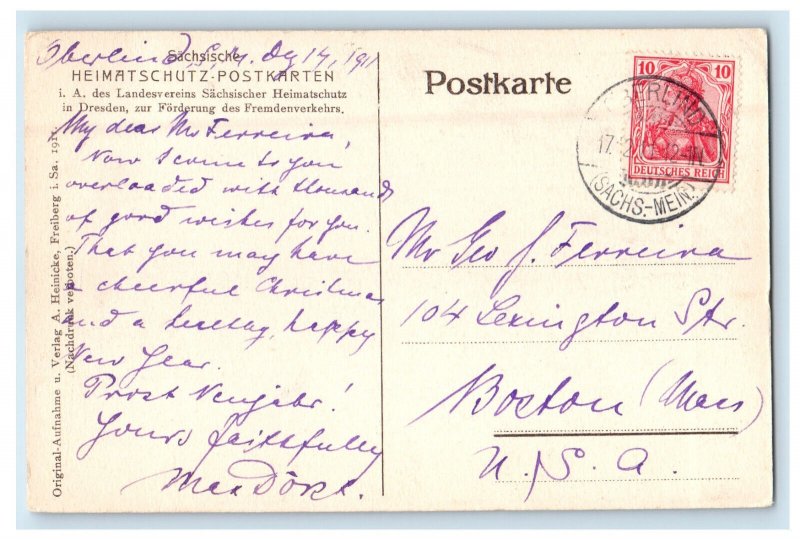 Oberlind S. M. Dz 17, 1911
Sächsische
HEIMATSCHUTZ-POSTKARTEN
i. A. des Landesvereins Sächsischer Heimatschutz
in Dresden, zur Förderung des Fremdenverkehrs.
My dear Mr Ferreira,
Now I come to you
overloaded with thousands
of good wishes for you.
That you may have
a cheerful Christmas
and a healthy, happy
New Year.
Prost Neujahr!
Yours faithfully
Max
Original-Aufnahme u. Verlag A. Heinicke, Freiberg i. Sa. 1911
(Nachdruck verboten.)
Postkarte
10 10
DEUTSCHES REICH
OBERLIND
17.12.
(SACHS.-MEIN.)
Mr Geo J. Ferreira
104 Lexington Str.
Boston (Mass
U. S. A.